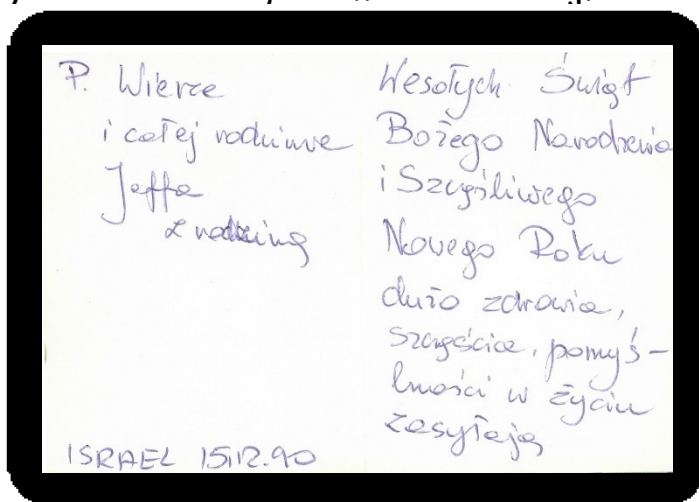 P. Wierze
i całej rodzinie
Jaffa
z rodziną
ISRAEL 15.12.90
Wesołych Świąt
Bożego Narodzenia
i Szczęśliwego
Nowego Roku
dużo zdrowia,
szczęścia, pomyś-
lności w życiu
zasyłają